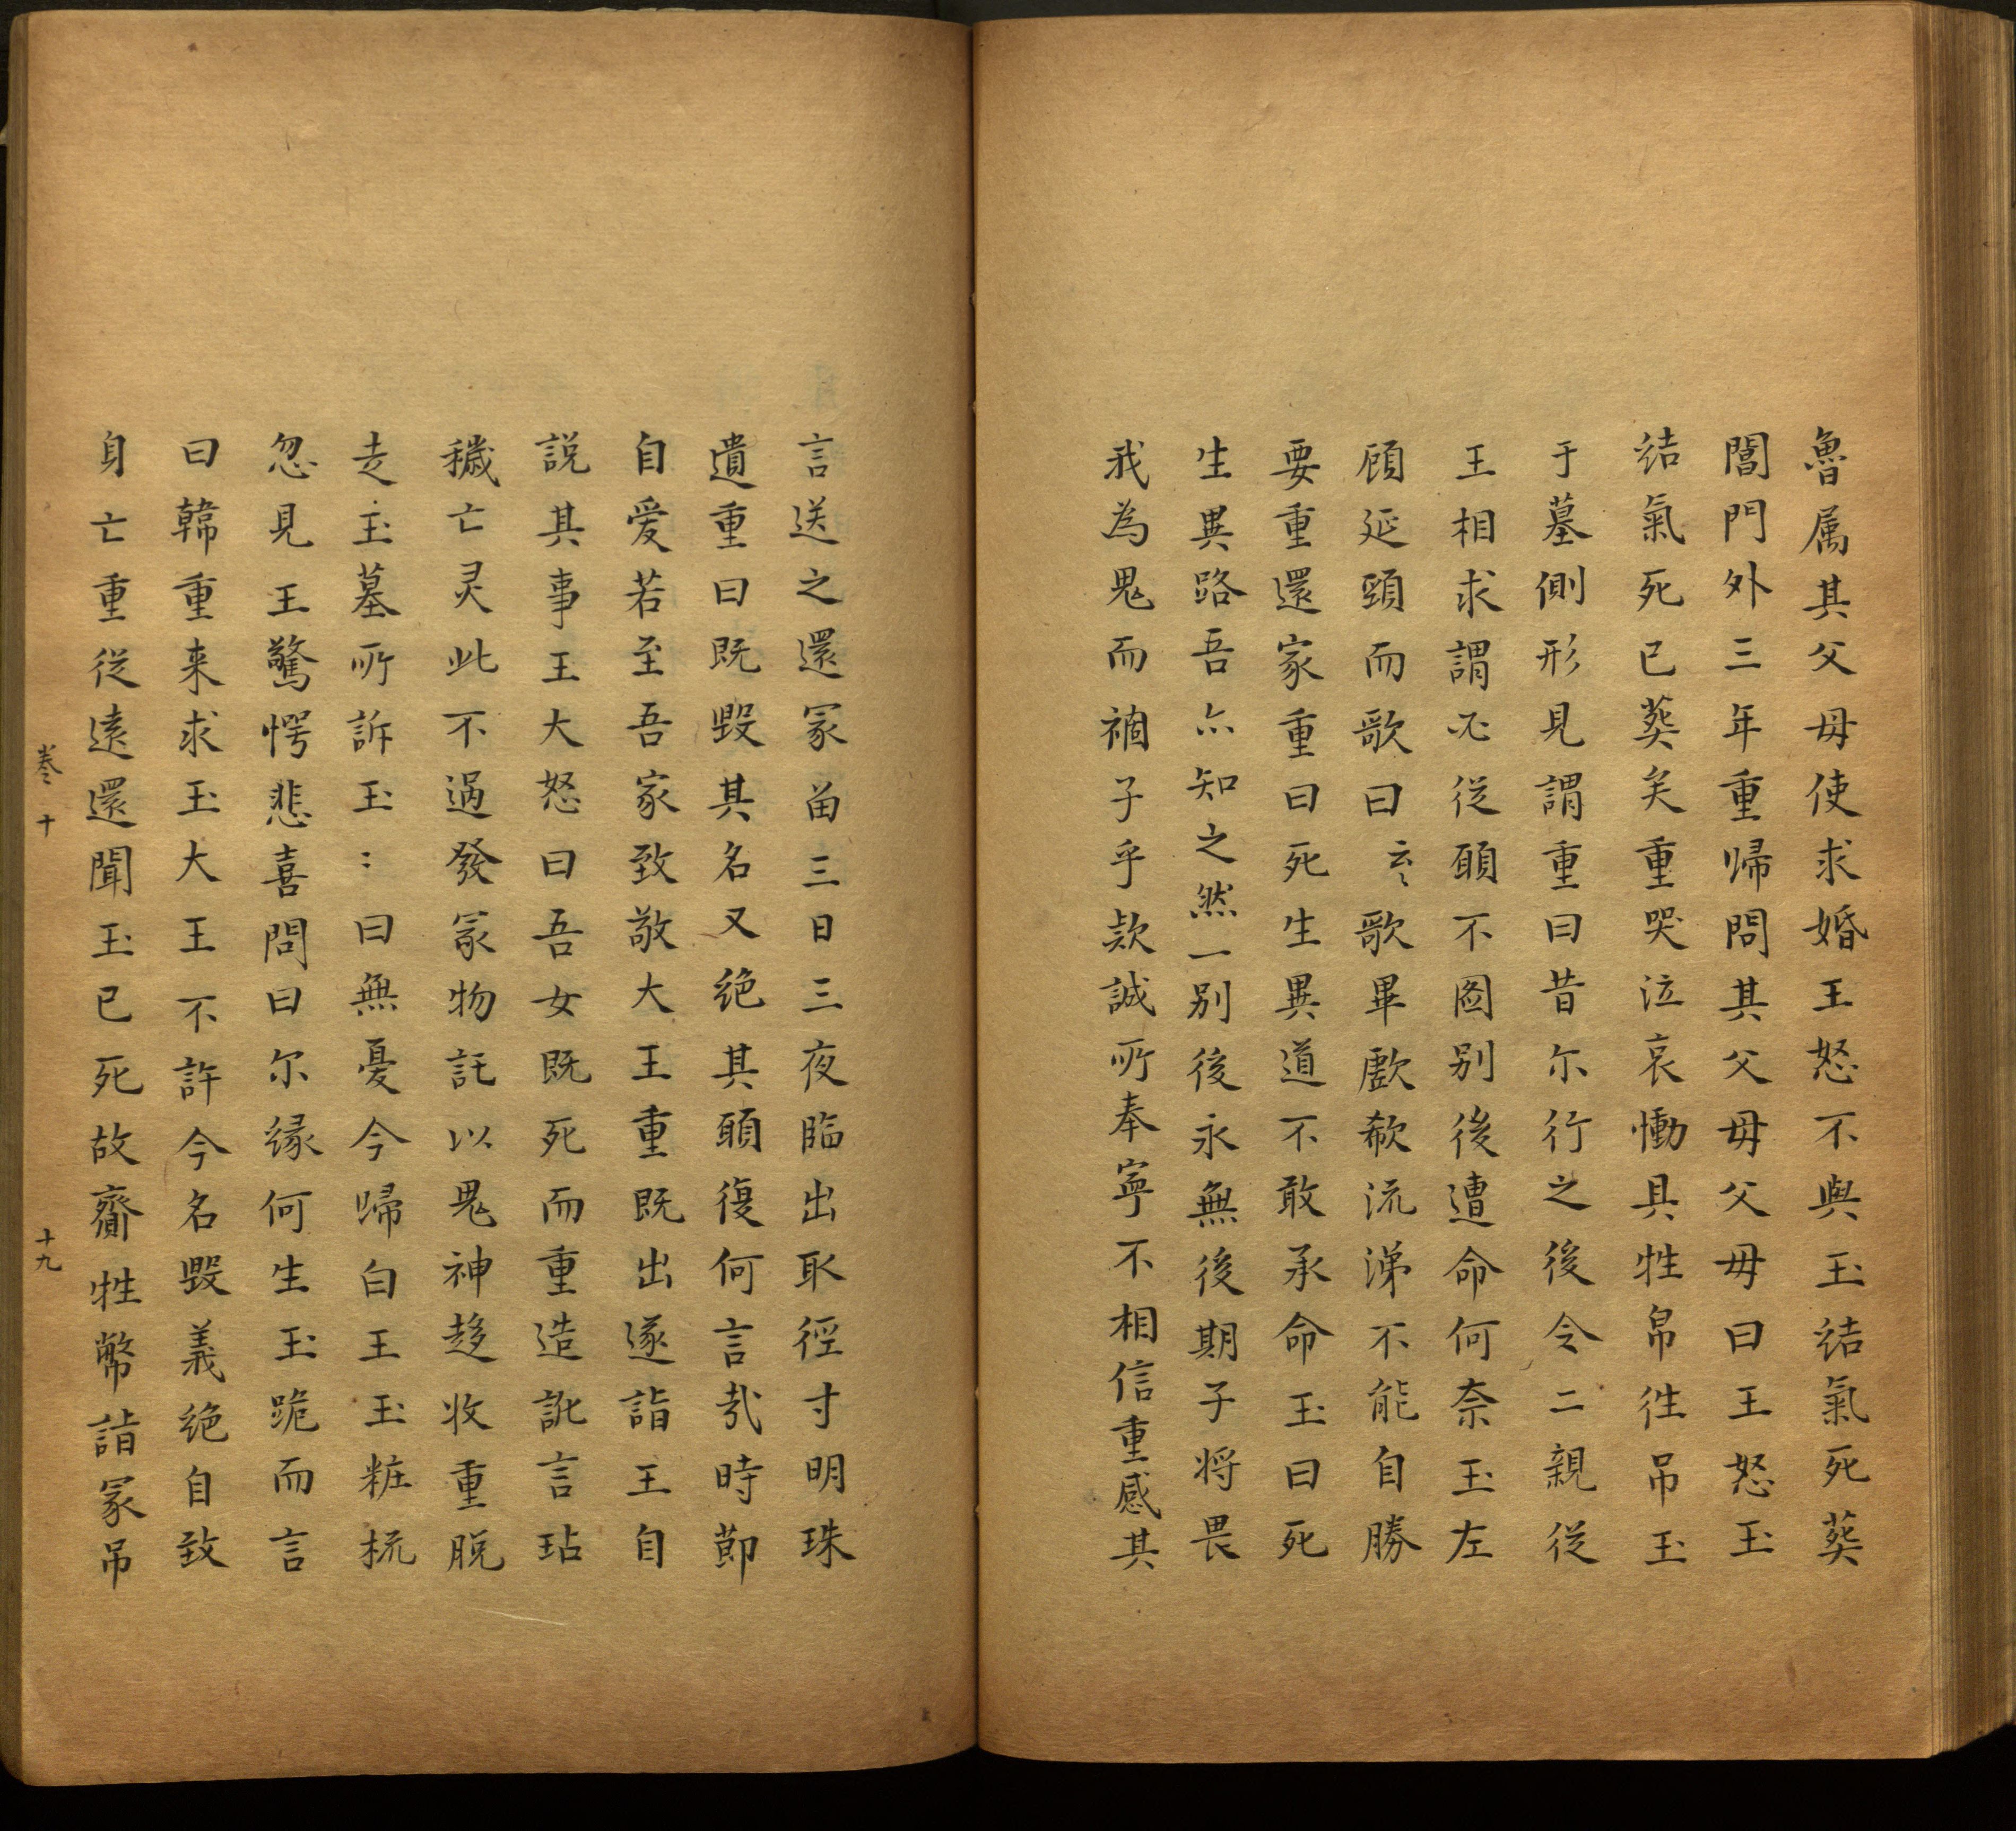 魯属其父母使求婚王怒不與玉结氣死葬
閶門外三年重帰問其父母父母曰王怒玉
结氣死已葬矣重哭泣哀慟具牲帛徃吊玉
于墓側形見謂重曰昔尔行之後令二親從
王相求謂必從願不圖别後遭命何奈玉左
顧延頸而歌曰云々歌畢歔欷流涕不能自勝
要重還家重曰死生異道不敢承命玉曰死
生異路吾亦知之然一别後永無後期子将畏
我為鬼而禍子乎欵誠所奉寧不相信重感其
言送之還冢留三日三夜臨出取徑寸明珠
遺重曰既毀其名又绝其願復何言㢤時節
自愛若至吾家致敬大王重既出遂詣王自
説其事王大怒曰吾女既死而重造訛言玷
穢亡灵此不過發冢物託以鬼神趍收重脱
走玉墓所訴玉：曰無憂今帰白王玉粧梳
忽見王驚愕悲喜問曰尔缘何生玉跪而言
曰韓重来求玉大王不許今名毀義绝自致
身亡重從遠還聞玉已死故齎牲幣詣冢吊
卷十
十九